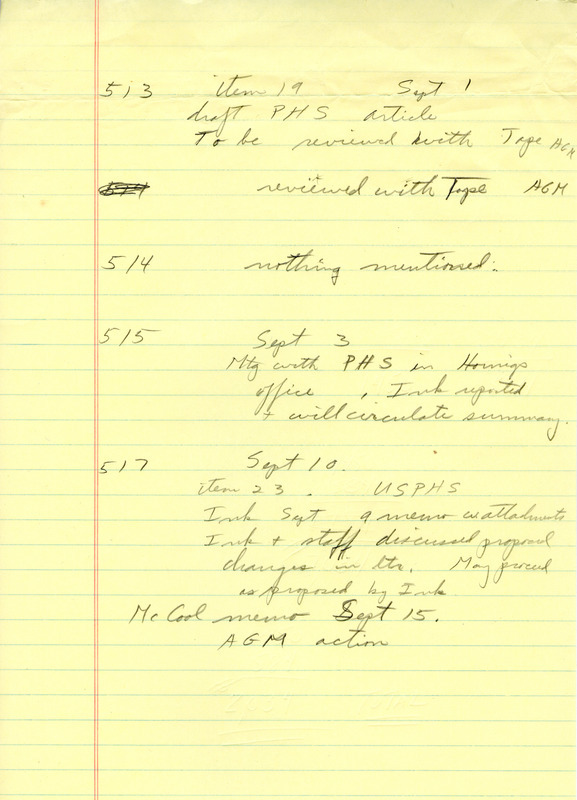 513 item 19 Sept 1
draft PHS article
To be reviewed with Tape AGM
reviewed with Tape AGM
514 nothing mentioned.
515 Sept 3
Mtg with PHS in Hornigs
office , Ink reported
+ will circulate summary.
517 Sept 10.
item 23 . USPHS
Ink Sept 9 memo w attachments
Ink + staff discussed proposed
changes in ltr. May proceed
as proposed by Ink
McCool memo Sept 15.
AGM action